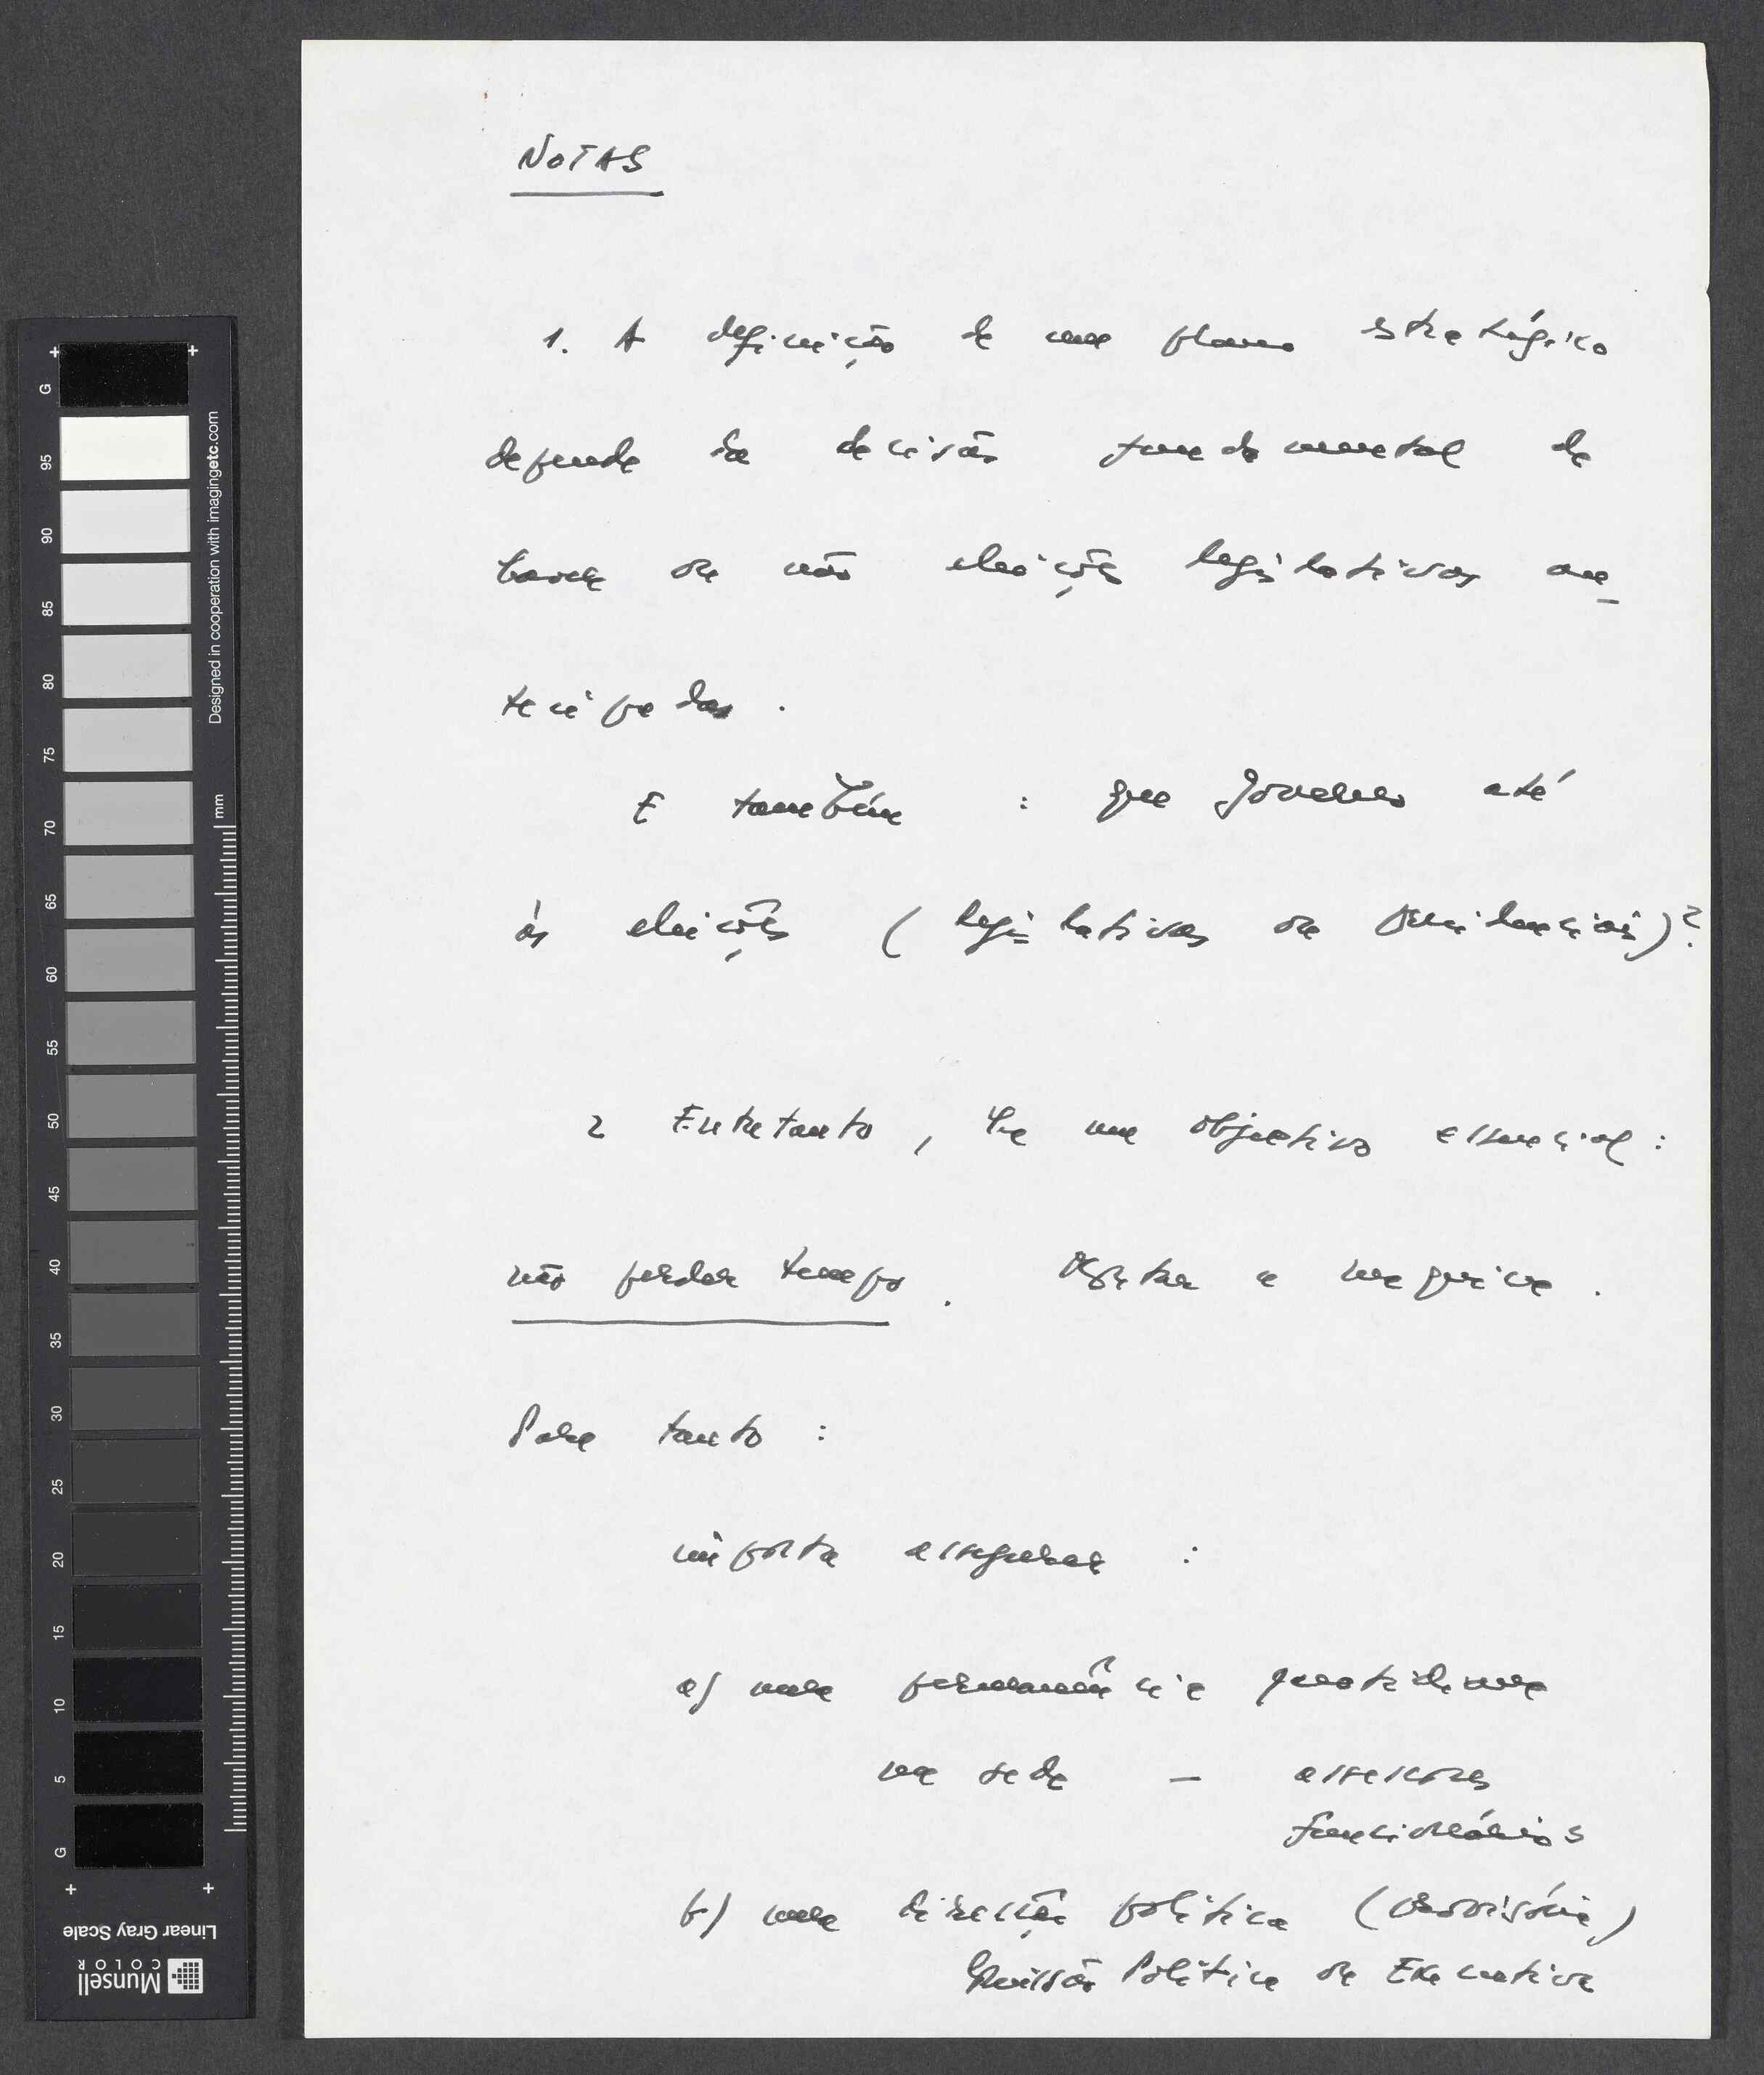 NOTAS
1. A definição de um plano estratégico
depende da decisão fundamental de
haver ou não eleições legislativas an-
tecipadas.
E também : que Governo até
às eleições (legislativas ou Presidenciais)?
2 Entretanto, há um objectivo essencial :
não perder tempo. Oferecer a máquina.
Para tanto :
importa assegurar :
a) uma permanência quotidiana
na sede — assessores
funcionários
b) uma direcção política (provisória)
Comissão Política ou Executiva
+ +
G
95
90
85
80
75
70
65
60
55
50
45
40
35
30
25
20
15
10
5
G
+ +
Designed in cooperation with imagingetc.com
mm
Linear Gray Scale
Munsell
COLOR